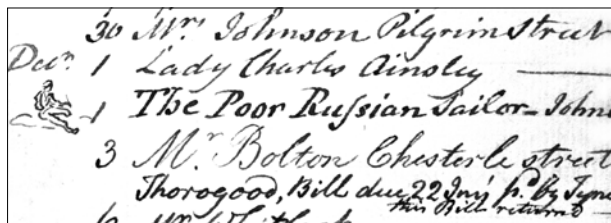 30 Mrs Johnson Pilgrim Street
Decr 1 Lady Charles Ainsley
1 The Poor Rufsian Sailor - John
3 Mr Bolton Chesterle street
Thorogood, Bill due 22 Jny pd by Tyne
this Bill returned